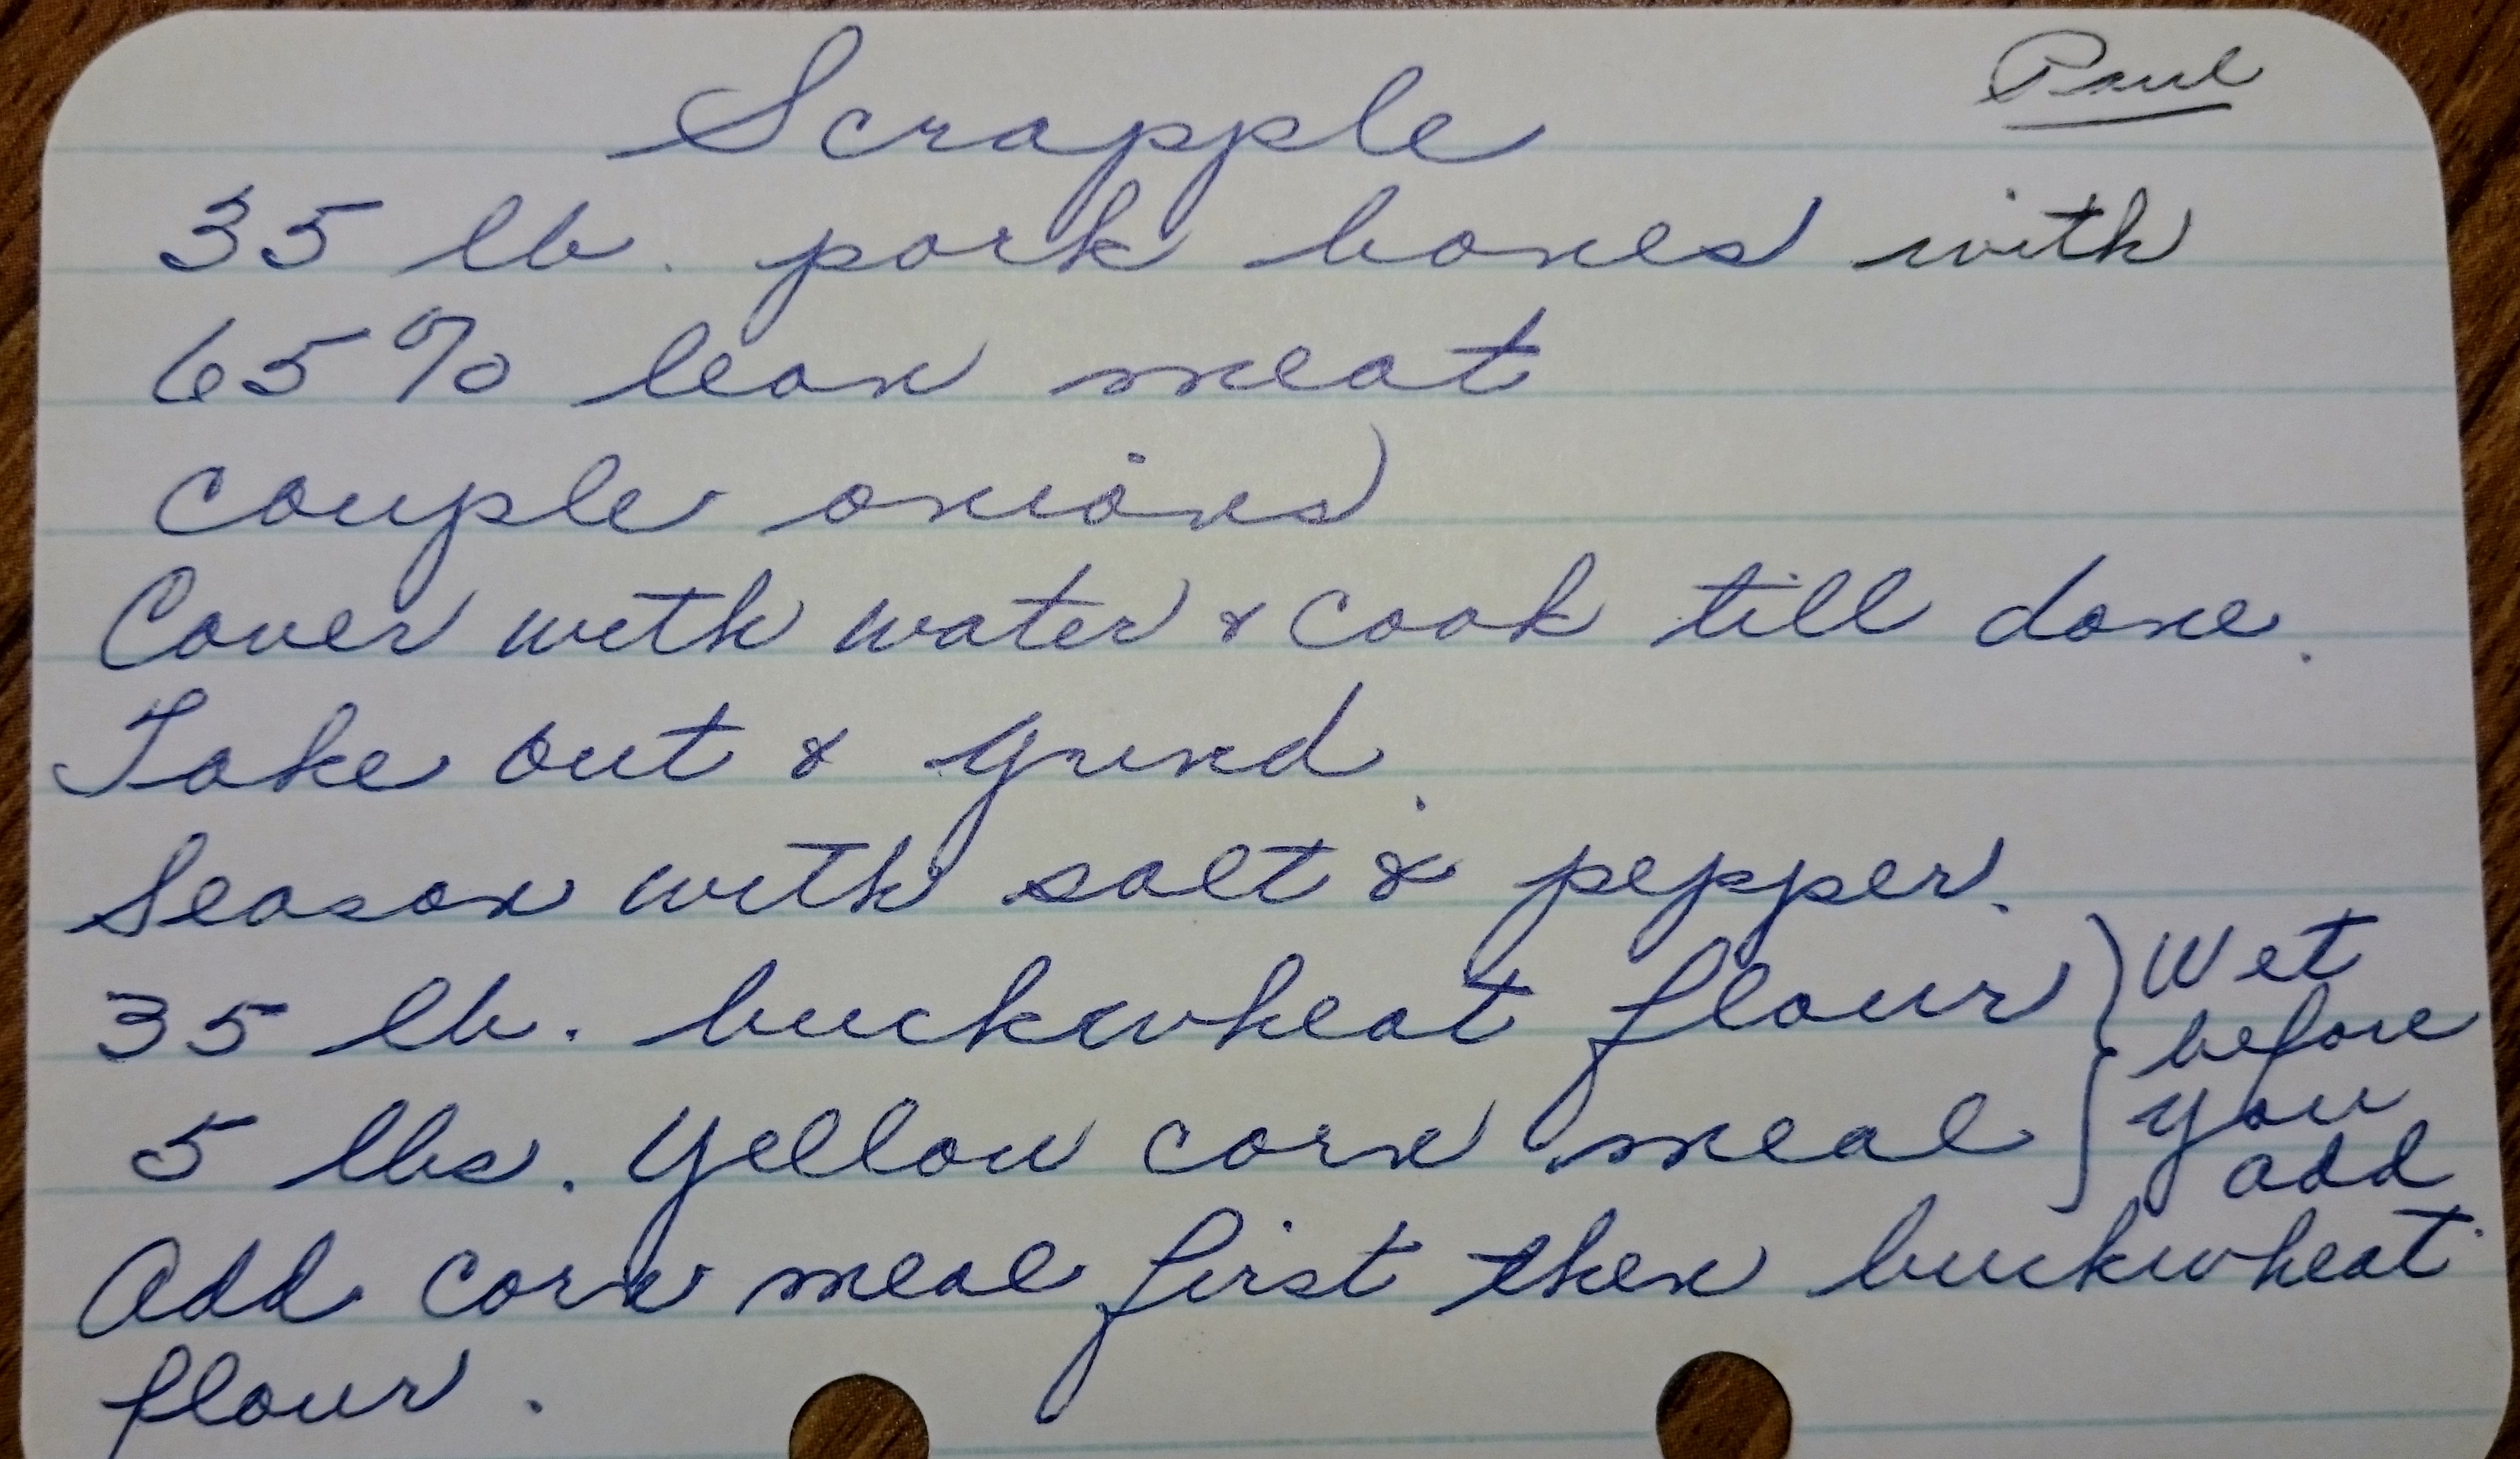 Scrapple
Paul
35 lb. pork bones with
65% lean meat
couple onions
Cover with water & cook till done.
Take out & grind.
Season with salt & pepper.
35 lb. buckwheat flour
5 lbs. yellow corn meal
Wet
before
you
add
Add corn meal first then buckwheat
flour.